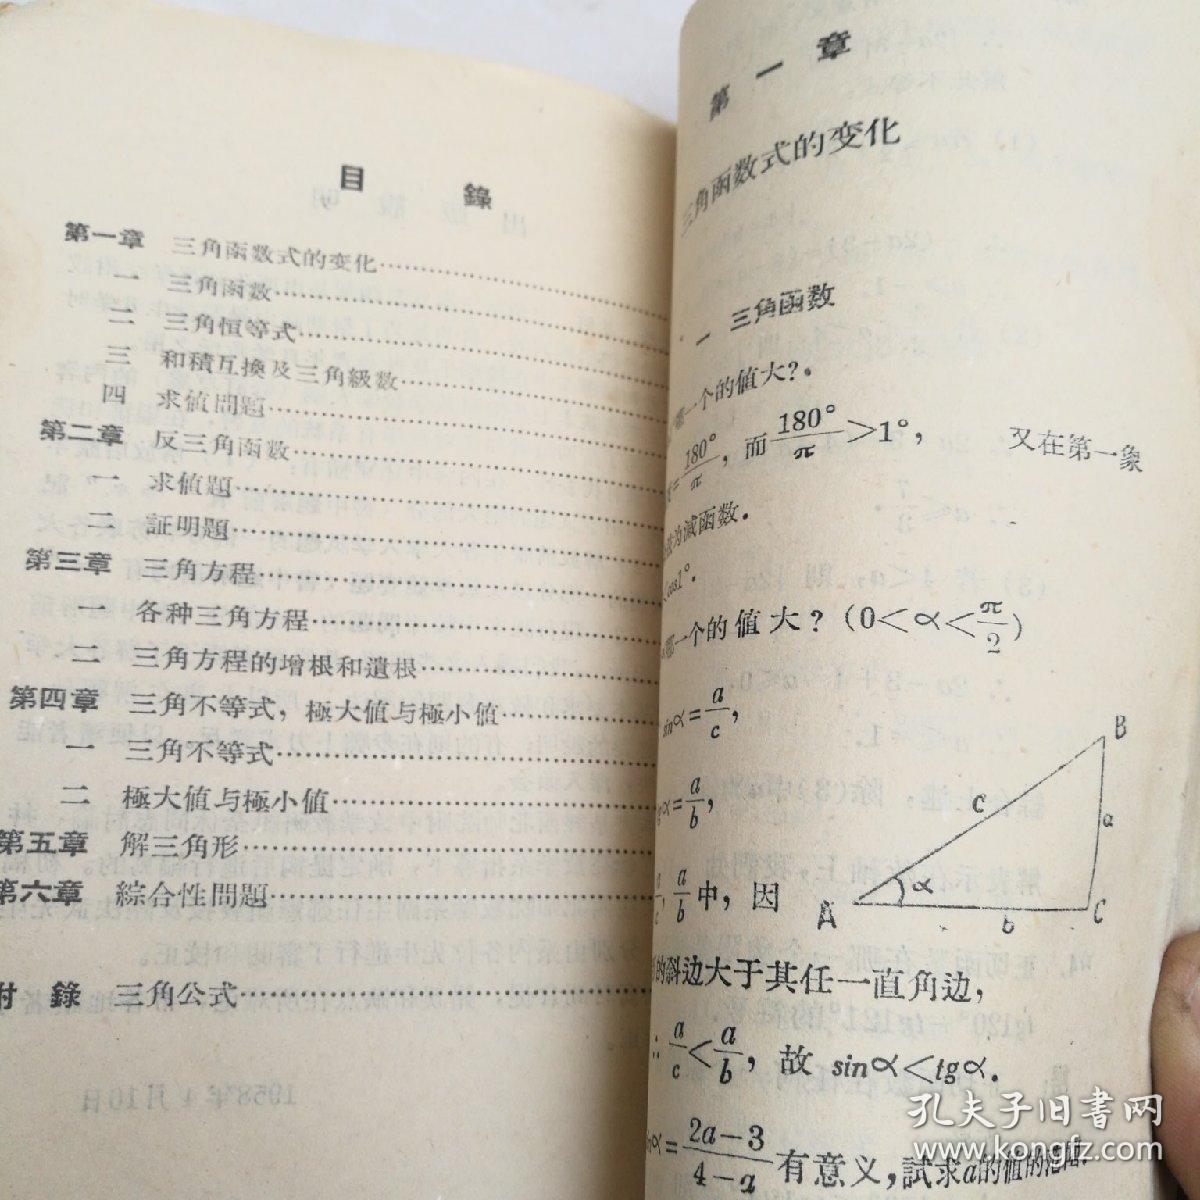 目 錄
第一章 三角函数式的变化……………
一 三角函数……………
二 三角恒等式……………
三 和積互換及三角級数……………
四 求值問題……………
第二章 反三角函数……………
一 求值題……………
二 証明題……………
第三章 三角方程……………
一 各种三角方程……………
二 三角方程的增根和遺根……………
第四章 三角不等式，極大值与極小值……………
一 三角不等式……………
二 極大值与極小值……………
第五章 解三角形……………
第六章 綜合性問題……………
附 錄 三角公式……………
第一章
三角函数式的变化
一 三角函数
一个的値大？
=180°/π，而180°/π>1°， 又在第一象
为减函数．
cos1°．
一个的値大？(0<α<π/2)
sinα=a/c，
α=a/b，
a/b中，因
的斜边大于其任一直角边，
∴ a/c<a/b，故 sinα<tgα．
α=(2a-3)/(4-a)有意义，試求a的値的范囲．
A
B
C
c
a
b
α
孔夫子旧书网
www.kongfz.com